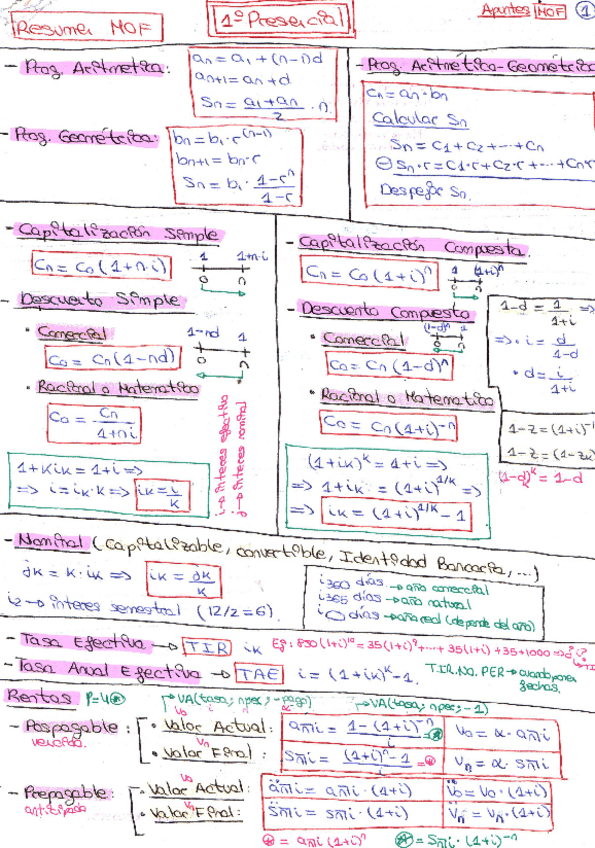 Apuntes MOF 1
Resumen MOF
1º Presencial
- Prog. Aritmética:
an = a1 + (n-1)d
an+1 = an + d
Sn = a1+an/2 · n
- Prog. Geométrica:
bn = b1 · r^(n-1)
bn+1 = bn · r
Sn = b1 · 1-r^n/1-r
- Prog. Aritmético-Geométrica
Cn = an · bn
Calcular Sn
Sn = C1 + C2 + ... + Cn
⊖ Sn·r = C1·r + C2·r + ... + Cn·r
Despejar Sn.
- Capitalización Simple
Cn = C0 (1+n·i)
1 1+n·i
0 n
- Descuento Simple
• Comercial
C0 = Cn (1-nd)
1-nd 1
0 n
• Racional o Matemático
C0 = Cn/1+ni
1+k ik = 1+i =>
=> i = ik·k => ik = i/k
i → interes efectivo
j → interes nominal
- Capitalización Compuesta.
Cn = C0 (1+i)^n
1 (1+i)^n
0 n
- Descuento Compuesto
• Comercial
(1-d)^n 1
0 n
C0 = Cn (1-d)^n
• Racional o Matemático
C0 = Cn (1+i)^-n
(1+ik)^k = 1+i =>
=> 1+ik = (1+i)^1/k =>
=> ik = (1+i)^1/k - 1
1-d = 1/1+i =>
=> · i = d/1-d
• d = i/1+i
1-z = (1+i)^-1
1-z = (1-zk)
(1-dk)^k = 1-d
- Nominal (Capitalizable, convertible, Identidad Bancaria, ...)
jk = k · ik => ik = jk/k
i2 → interes semestral (12/2=6).
i360 días → año comercial
i365 días → año natural
i días → año real (depende del año)
- Tasa Efectiva → TIR ik Ej: 830(1+i)^10 = 35(1+i)^9 + ... + 35(1+i) + 35 + 1000 => ¿i?
- Tasa Anual Efectiva → TAE i = (1+ik)^k - 1.
T.I.R. NO. PER → cuando ponen fechas.
Rentas
→ VA(tasa; nper; -pago)
→ VA(tasa; nper; -1)
- Pospagable: vencida.
• Valor Actual: V0
an̅i = 1-(1+i)^-n/i
V0 = α · an̅i
• Valor Final: Vn
Sn̅i = (1+i)^n - 1/i
Vn = α · Sn̅i
- Prepagable: anticipada
• Valor Actual: V0
än̅i = an̅i · (1+i)
V̈0 = V0 · (1+i)
• Valor Final: Vn
S̈n̅i = Sn̅i · (1+i)
V̈n = Vn · (1+i)
= an̅i (1+i)^n
= Sn̅i · (1+i)^-n